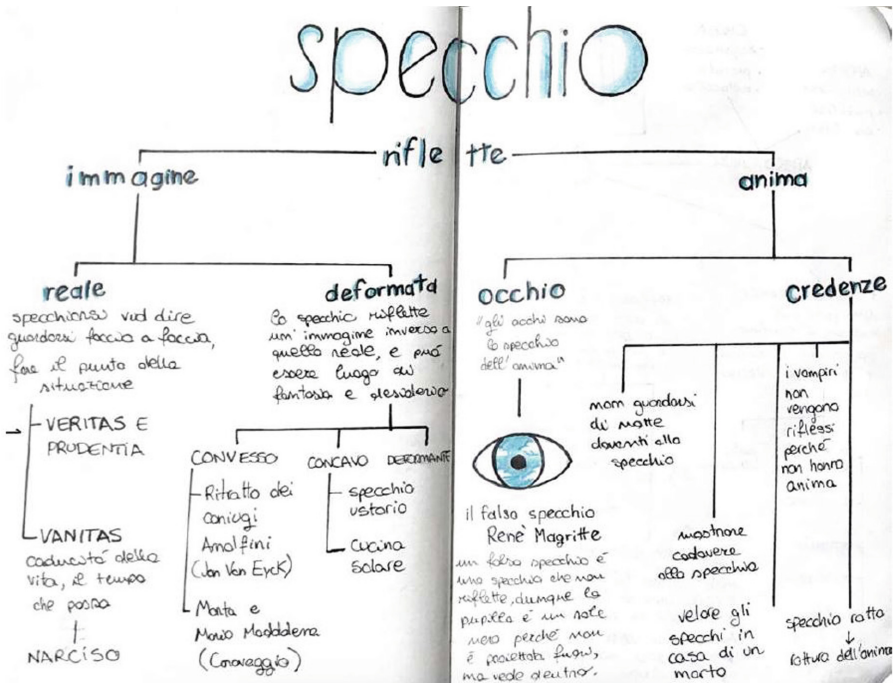 specchio
riflette
immagine
anima
reale
specchiarsi vuol dire
guardarsi faccia a faccia,
fare il punto della
situazione
VERITAS E
PRUDENTIA
VANITAS
caducità della
vita, il tempo
che passa
NARCISO
deformata
lo specchio riflette
un'immagine inversa a
quella reale, e può
essere luogo di
fantasia e desiderio
CONVESSO
Ritratto dei
coniugi
Arnolfini
(Jan Van Eyck)
Marta e
Maria Maddalena
(Caravaggio)
CONCAVO
specchio
ustorio
cucina
solare
DEFORMANTE
occhio
"gli occhi sono
lo specchio
dell'anima"
il falso specchio
Renè Magritte
un falso specchio è
uno specchio che non
riflette, dunque la
pupilla è un sole
nero perché non
è proiettata fuori,
ma vede dentro.
credenze
non guardarsi
di notte
davanti allo
specchio
mostrare
cadavere
allo specchio
i vampiri
non
vengono
riflessi
perché
non hanno
anima
velare gli
specchi in
casa di un
morto
specchio rotto
↓
rottura dell'anima